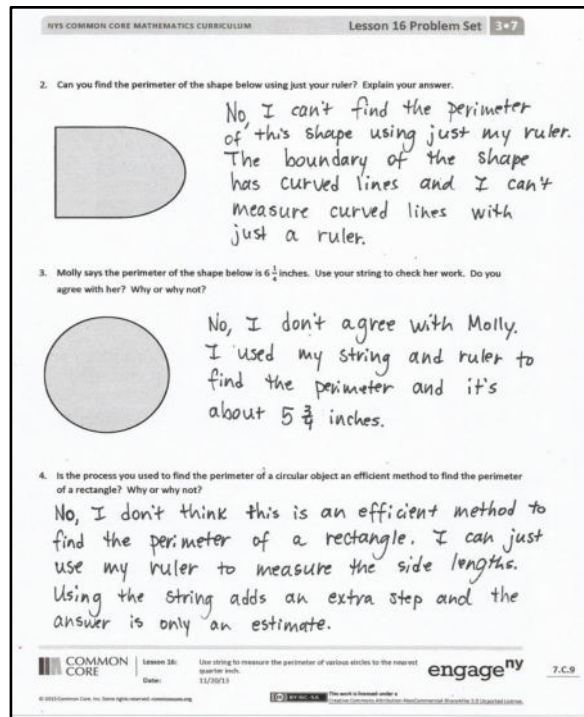 NYS COMMON CORE MATHEMATICS CURRICULUM
Lesson 16 Problem Set
3•7
2. Can you find the perimeter of the shape below using just your ruler? Explain your answer.
No, I can't find the perimeter
of this shape using just my ruler.
The boundary of the shape
has curved lines and I can't
measure curved lines with
just a ruler.
3. Molly says the perimeter of the shape below is 6 1/4 inches. Use your string to check her work. Do you
agree with her? Why or why not?
No, I don't agree with Molly.
I used my string and ruler to
find the perimeter and it's
about 5 3/4 inches.
4. Is the process you used to find the perimeter of a circular object an efficient method to find the perimeter
of a rectangle? Why or why not?
No, I don't think this is an efficient method to
find the perimeter of a rectangle. I can just
use my ruler to measure the side lengths.
Using the string adds an extra step and the
answer is only an estimate.
COMMON
CORE
Lesson 16:
Use string to measure the perimeter of various circles to the nearest
quarter inch.
Date:
11/20/13
engage ny
7.C.9
© 2013 Common Core, Inc. Some rights reserved. commoncore.org
(cc) BY-NC-SA
This work is licensed under a
Creative Commons Attribution-NonCommercial-ShareAlike 3.0 Unported License.